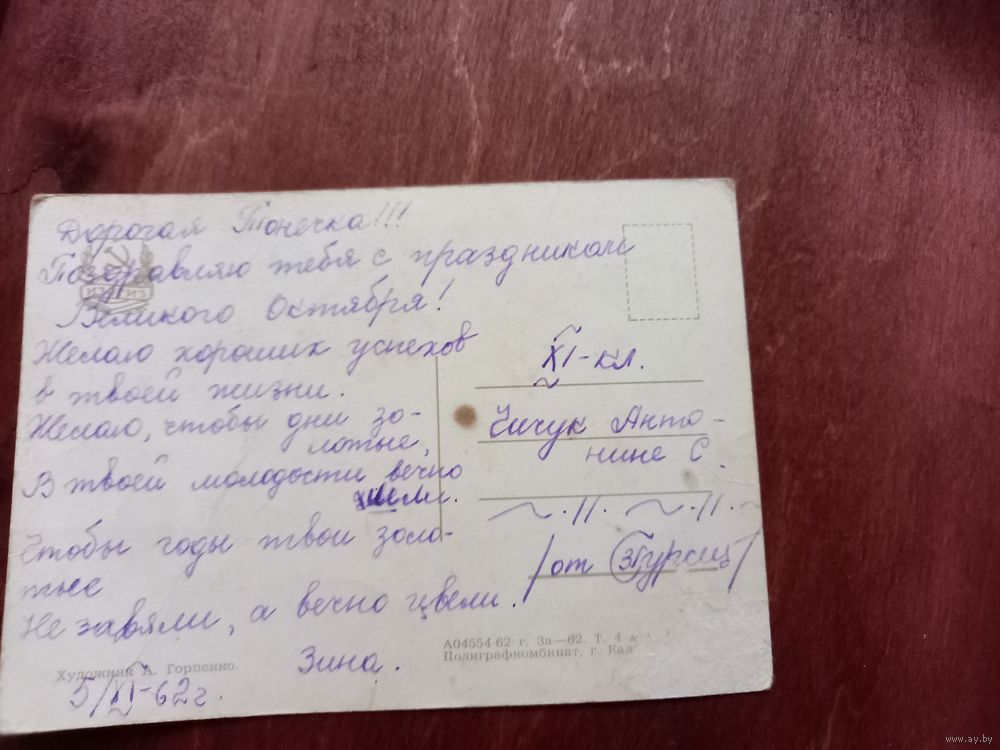 Дорогая Тонечка!!!
Поздравляю тебя с праздником
Великого Октября!
Желаю хороших успехов
в твоей жизни.
Желаю, чтобы дни зо-
лотые,
В твоей молодости вечно
шли.
Чтобы годы твои золо-
тые
Не завяли, а вечно цвели.
Зина.
5/XI-62г.
ИЗОГИЗ
Художник А. Горпенко.
XI-кл.
Чичук Анто-
нине С.
~.II. ~.II. ~
/от
А04554 62 г. За—62. Т. 4
Полиграфкомбинат, г. Кал
www.ay.by